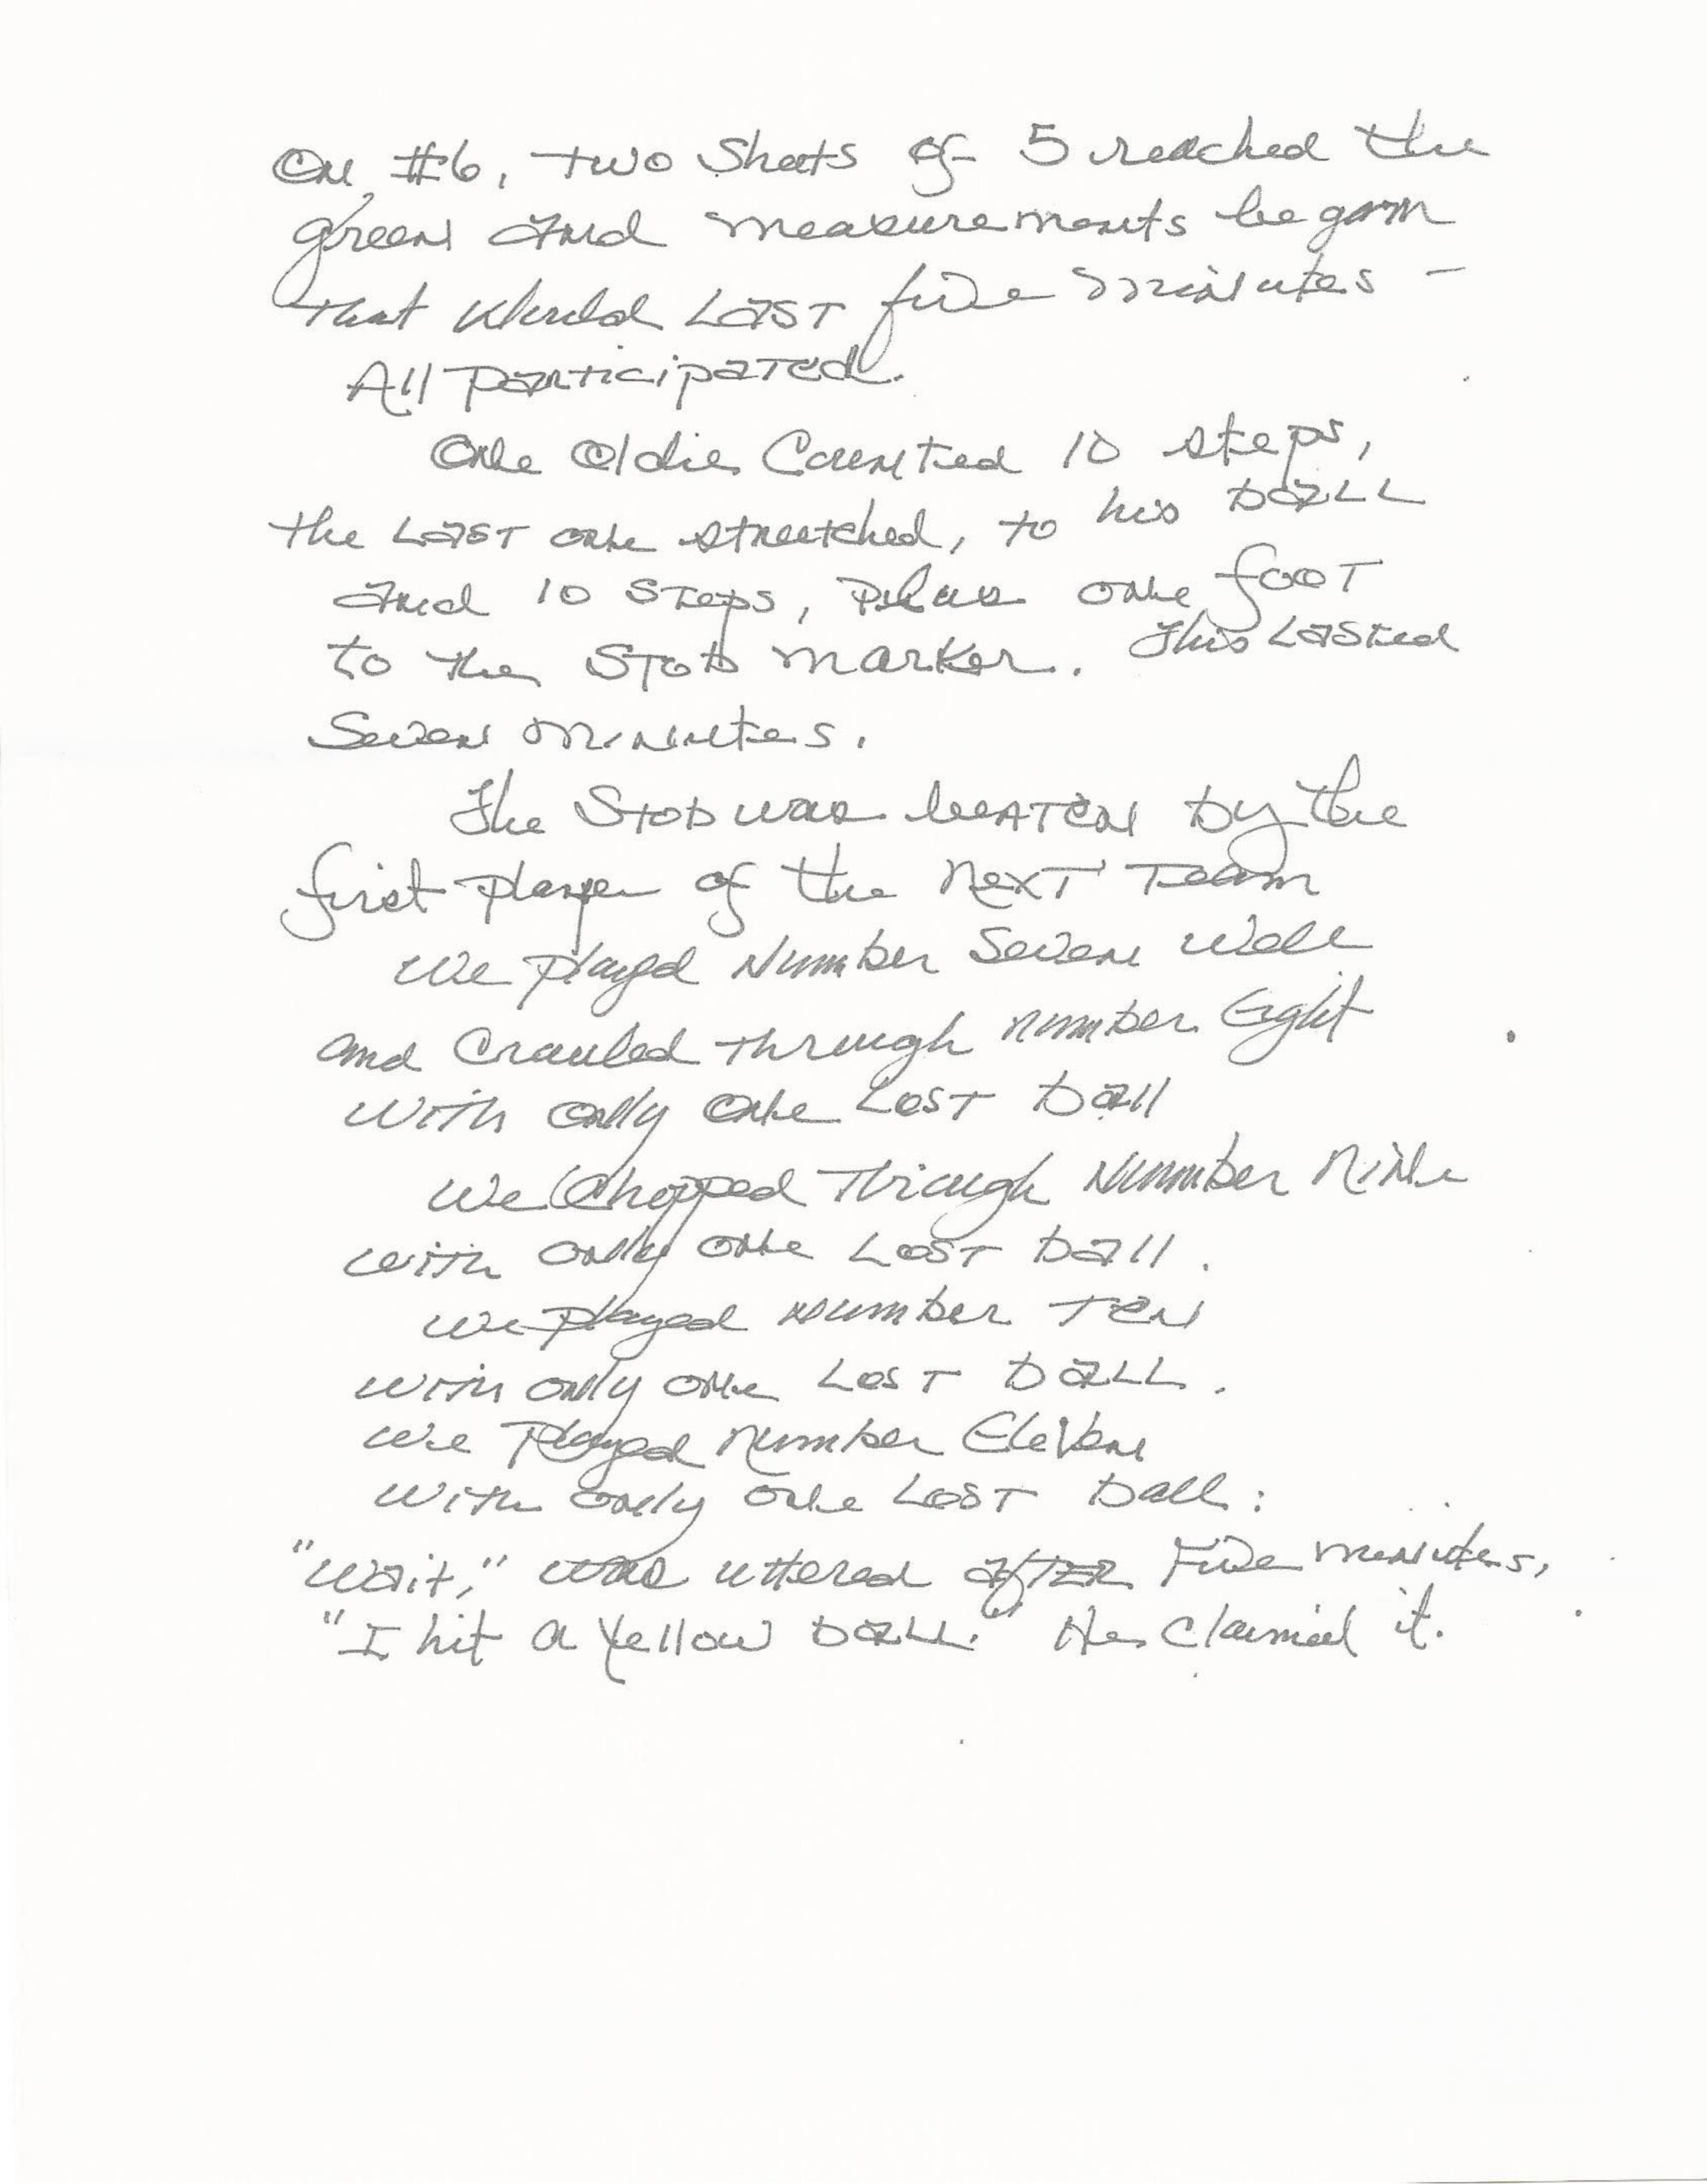 On #6, two Shots of 5 reached the
green and measurements began
that would Last five minutes -
All participated.
One Oldie Counted 10 steps,
the Last one stretched, to his ball
and 10 Steps, Plus one foot
to the Stob marker. This Lasted
Seven minutes.
The Stob was beaten by the
first player of the Next Team
We played Number Seven well
and Crawled through number Eight
with only one Lost ball
We Chopped Through Number Nine
with only one Lost ball.
We played number Ten
with only one Lost ball.
We Played number Eleven
with only one Lost ball:
"Wait," was uttered after Five minutes,
"I hit a yellow ball." He Claimed it.